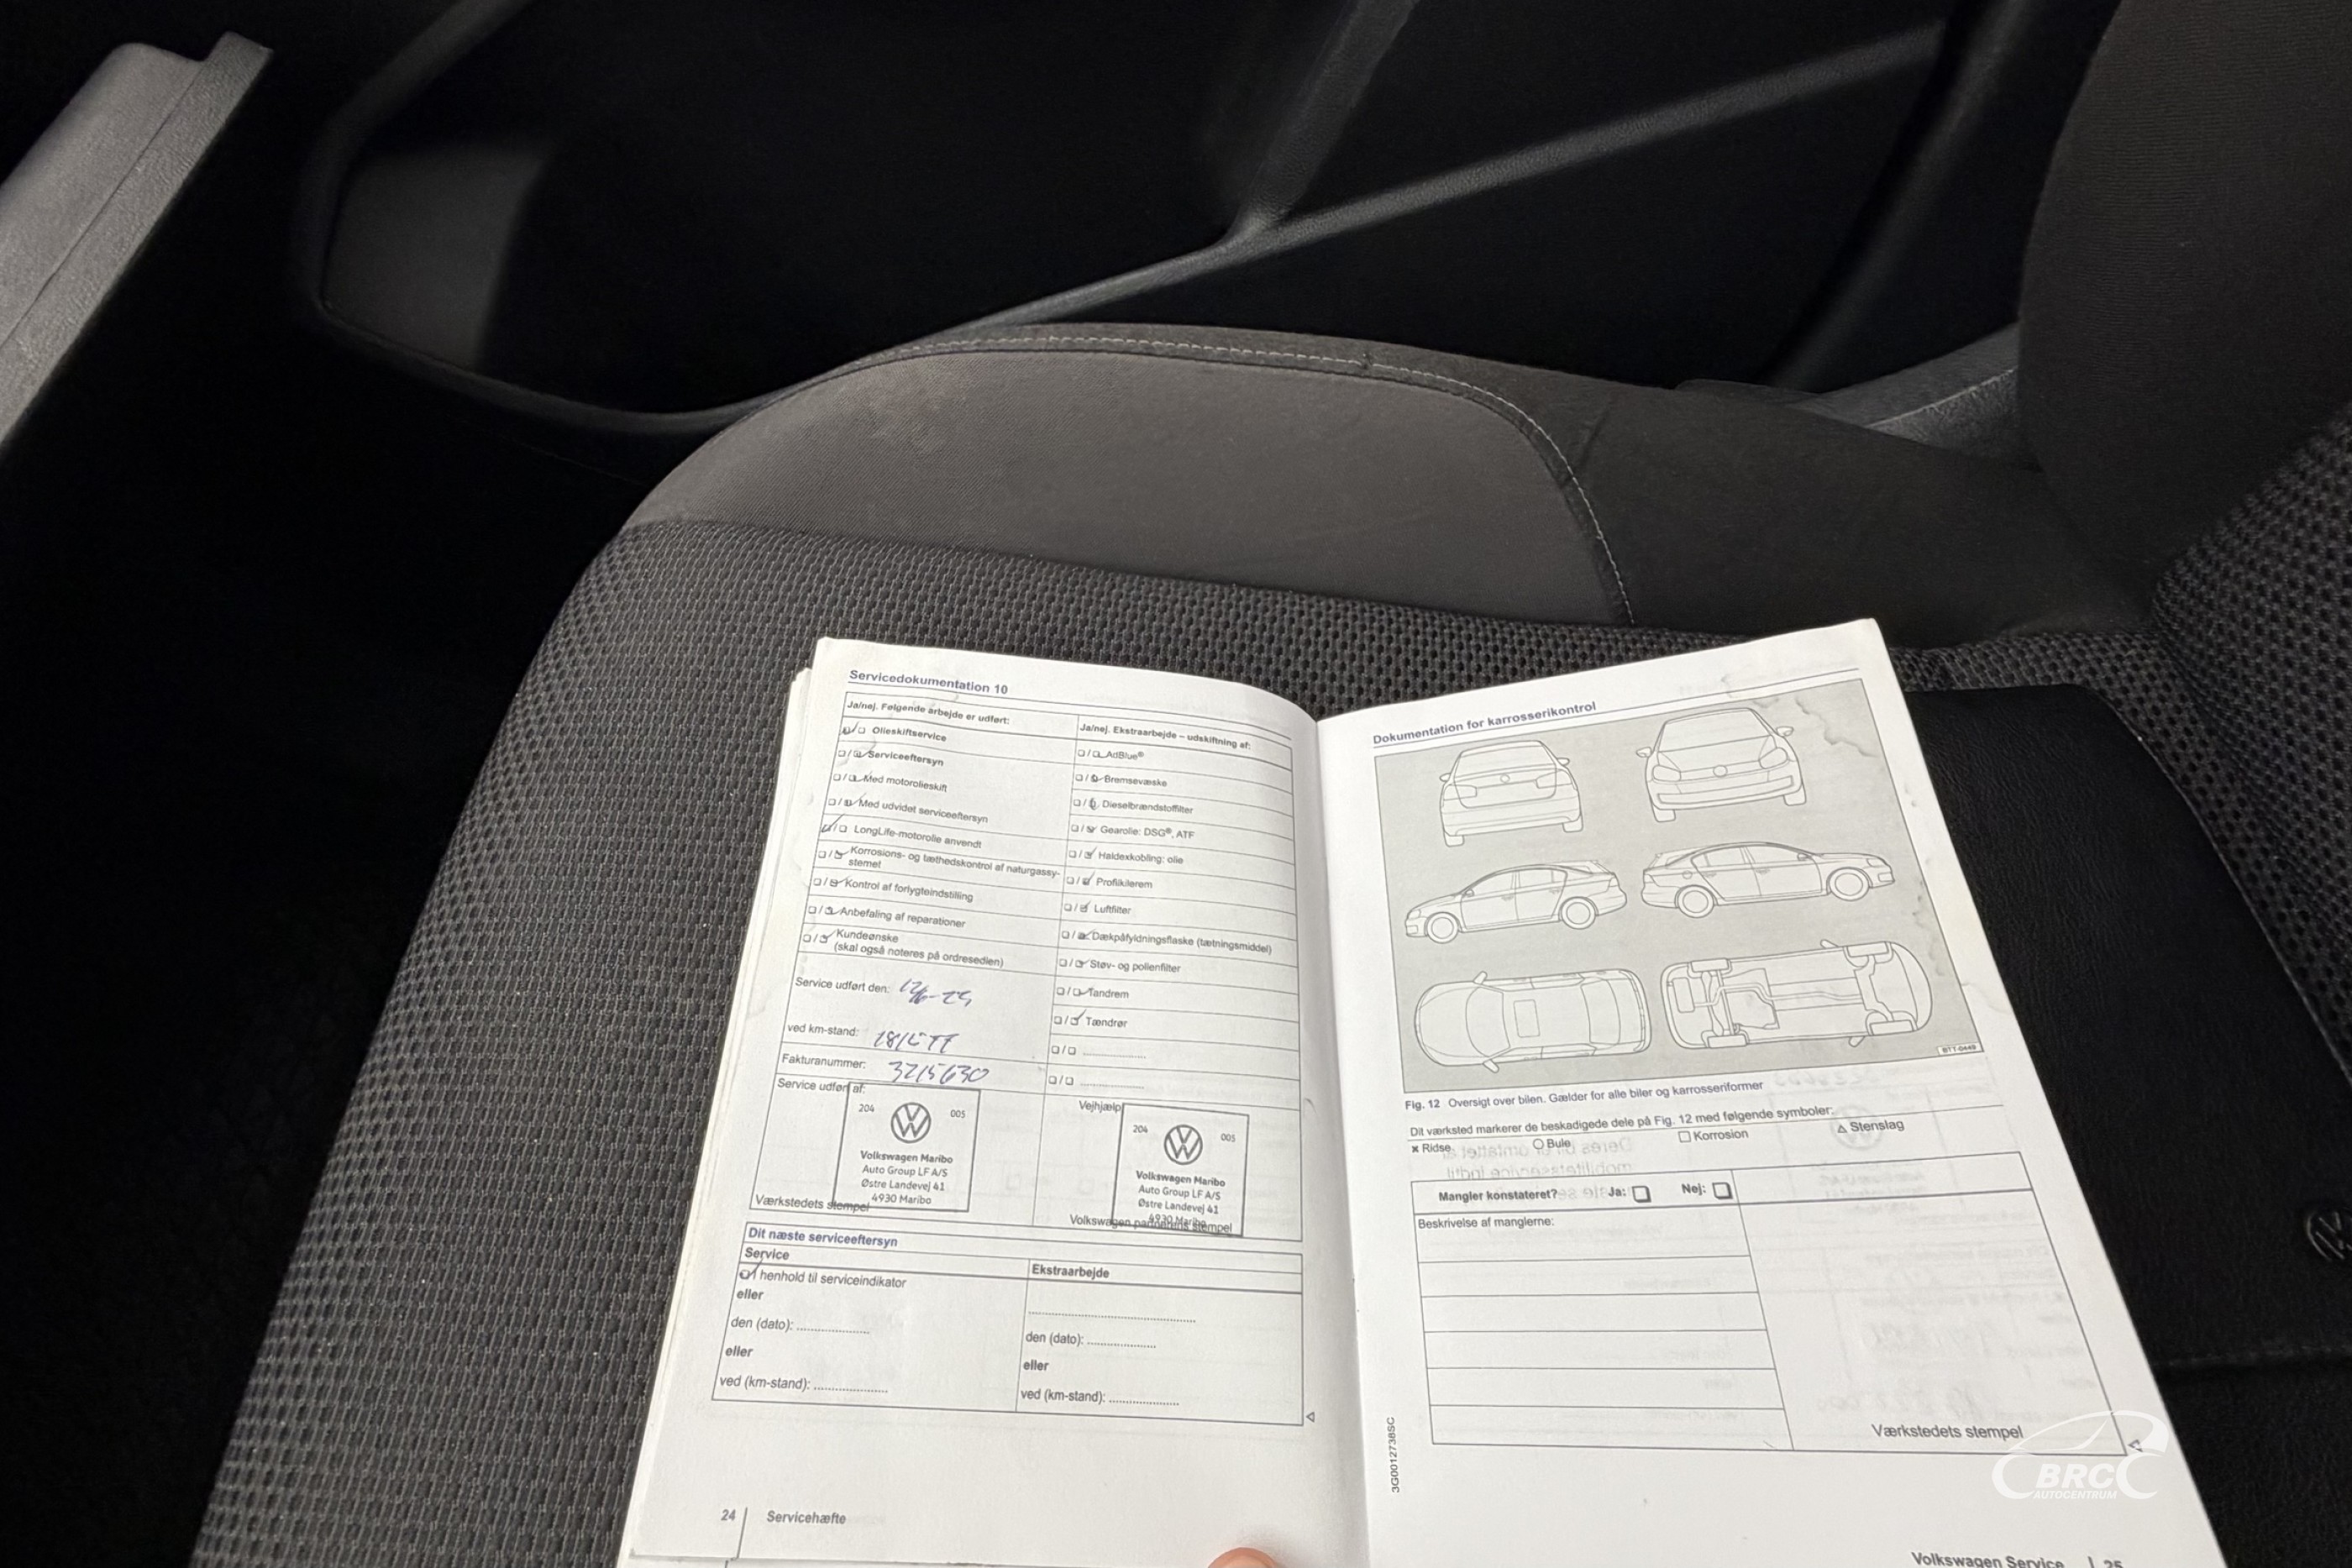 Servicedokumentation 10
Ja/nej. Følgende arbejde er udført:
Olieskiftservice
Serviceeftersyn
Med motorolieskift
Med udvidet serviceeftersyn
LongLife-motorolie anvendt
Korrosions- og tæthedskontrol af naturgassy-
stemet
Kontrol af forlygteindstilling
Anbefaling af reparationer
Kundeønske
(skal også noteres på ordresedlen)
Ja/nej. Ekstraarbejde – udskiftning af:
AdBlue®
Bremsevæske
Dieselbrændstoffilter
Gearolie: DSG®, ATF
Haldexkobling: olie
Profilkilerem
Luftfilter
Dækpåfyldningsflaske (tætningsmiddel)
Støv- og pollenfilter
Tandrem
Tændrør
Service udført den:
ved km-stand:
Fakturanummer: 3215630
Service udført af:
204 005
Volkswagen Maribo
Auto Group LF A/S
Østre Landevej 41
4930 Maribo
Værkstedets stempel
Vejhjælp
204 005
Volkswagen Maribo
Auto Group LF A/S
Østre Landevej 41
4930 Maribo
Volkswagen partnerens stempel
Dit næste serviceeftersyn
Service
I henhold til serviceindikator
eller
den (dato):
eller
ved (km-stand):
Ekstraarbejde
den (dato):
eller
ved (km-stand):
24 Servicehæfte
Dokumentation for karrosserikontrol
BTT-0449
Fig. 12 Oversigt over bilen. Gælder for alle biler og karrosseriformer
Dit værksted markerer de beskadigede dele på Fig. 12 med følgende symboler:
Ridse Bule Korrosion Stenslag
Mangler konstateret? Ja: Nej:
Beskrivelse af manglerne:
Værkstedets stempel
3G0012738SC
Volkswagen Service 25
BRC
AUTOCENTRUM